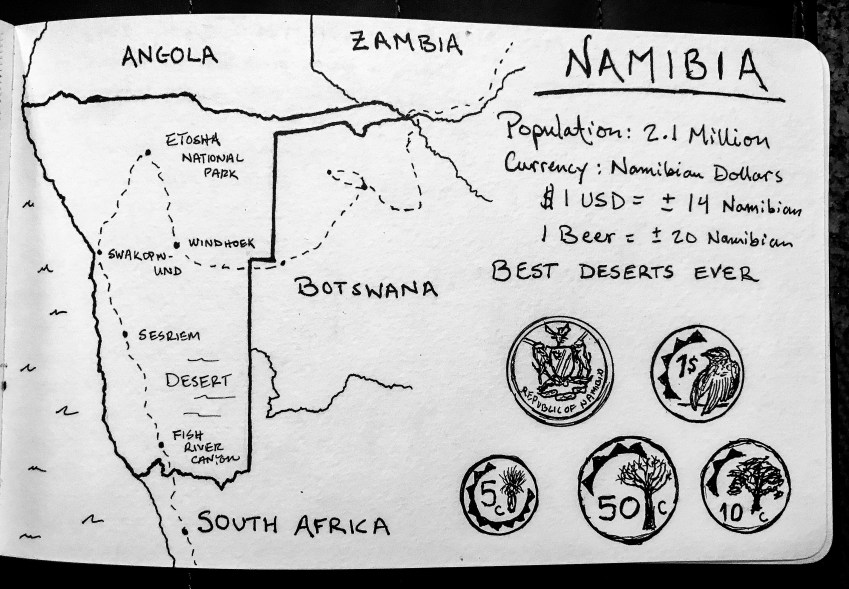 ANGOLA
ZAMBIA
NAMIBIA
Population: 2.1 Million
Currency: Namibian Dollars
$1 USD = ± 14 Namibian
1 Beer = ± 20 Namibian
BEST DESERTS EVER
ETOSHA
NATIONAL
PARK
WINDHOEK
SWAKOPM-
UND
BOTSWANA
SESRIEM
DESERT
FISH
RIVER
CANYON
SOUTH AFRICA
REPUBLIC OF NAMIBIA
1$
5c
50c
10c